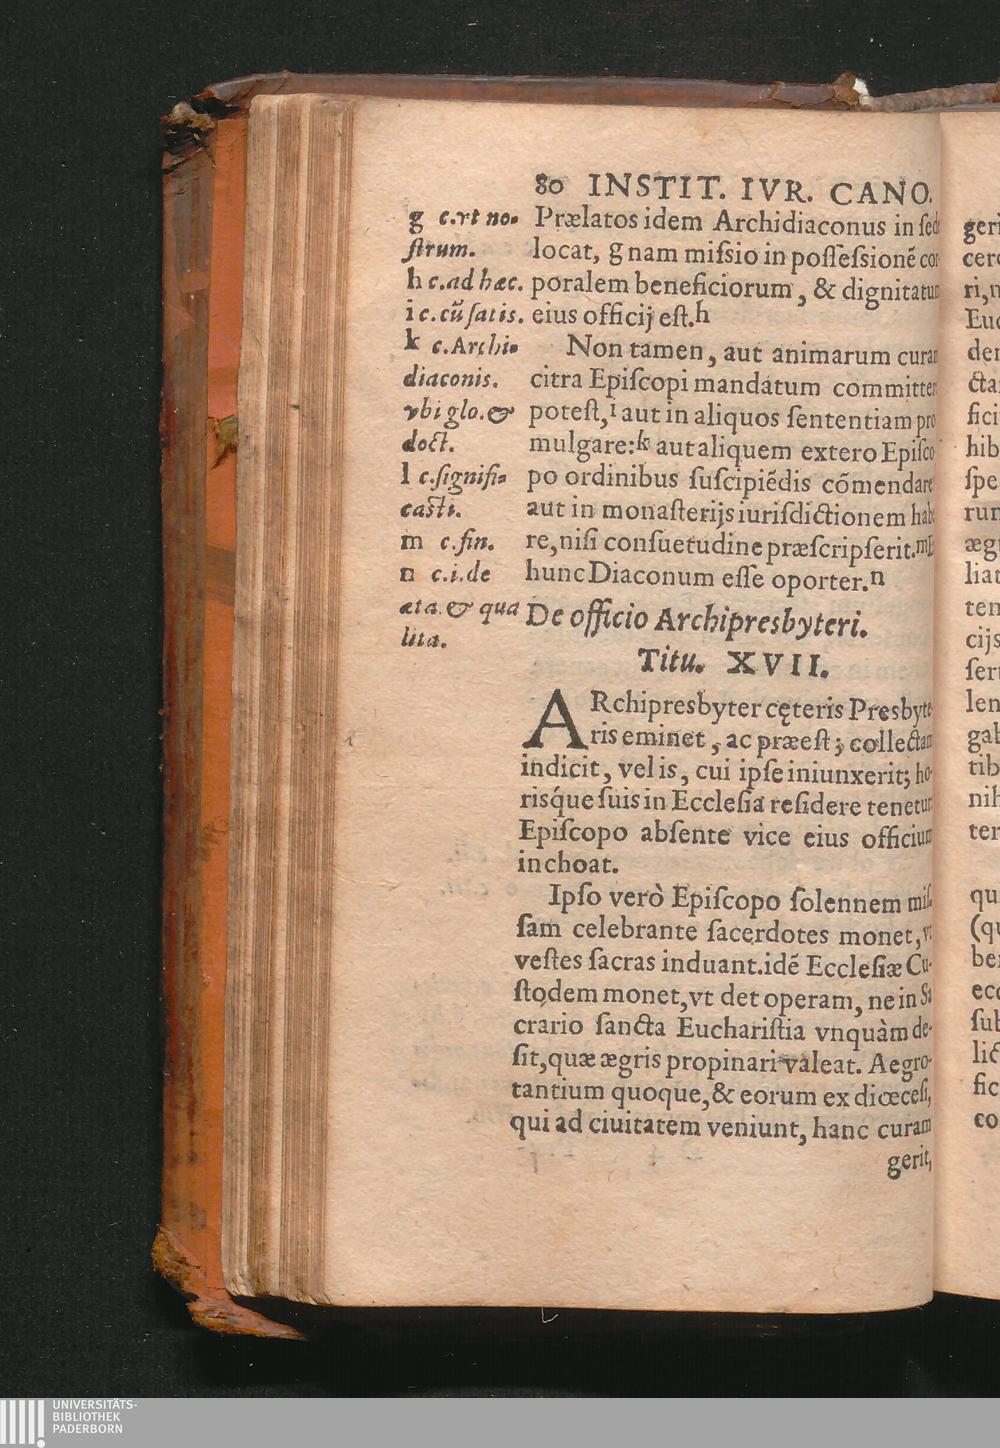 80 INSTIT. IVR. CANO.
g c.vt no-
ſtrum.
h c.ad hæc.
i c.cũ ſatis.
k c.Archi-
diaconis.
vbi glo. &
doct.
l c.ſignifi-
caſti.
m c.fin.
n c.i.de
æta. & qua
lita.
Prælatos idem Archidiaconus in ſede
locat, g nam miſsio in poſſeſsionẽ cor
poralem beneficiorum, & dignitatum
eius officij eſt.h
Non tamen, aut animarum curam
citra Epiſcopi mandatum committere
poteſt,i aut in aliquos ſententiam pro
mulgare:k aut aliquem extero Epiſco
po ordinibus ſuſcipiẽdis cõmendare
aut in monaſterijs iuriſdictionem habe
re, niſi conſuetudine præſcripſerit.m
hunc Diaconum eſſe oportet.n
De officio Archipresbyteri.
Titu. XVII.
ARchipresbyter cęteris Presbyte
ris eminet, ac præeſt; collectam
indicit, vel is, cui ipſe iniunxerit; ho-
riſq́ue ſuis in Eccleſia reſidere tenetur
Epiſcopo abſente vice eius officium
inchoat.
Ipſo verò Epiſcopo ſolennem miſ-
ſam celebrante ſacerdotes monet, vt
veſtes ſacras induant. idẽ Eccleſiæ Cu-
ſtodem monet, vt det operam, ne in Sa
crario ſancta Euchariſtia vnquàm de-
ſit, quæ ægris propinari valeat. Aegro-
tantium quoque, & eorum ex diœceſi,
qui ad ciuitatem veniunt, hanc curam
gerit,
geri
cerc
ri, n
Euc
den
cta
fici
hib
ſpe
run
ægr
liat
ten
cijs
ſert
len
gab
tib
nih
ter
qu
(qu
be
ecc
ſub
lic
fic
co
UNIVERSITÄTS-
BIBLIOTHEK
PADERBORN